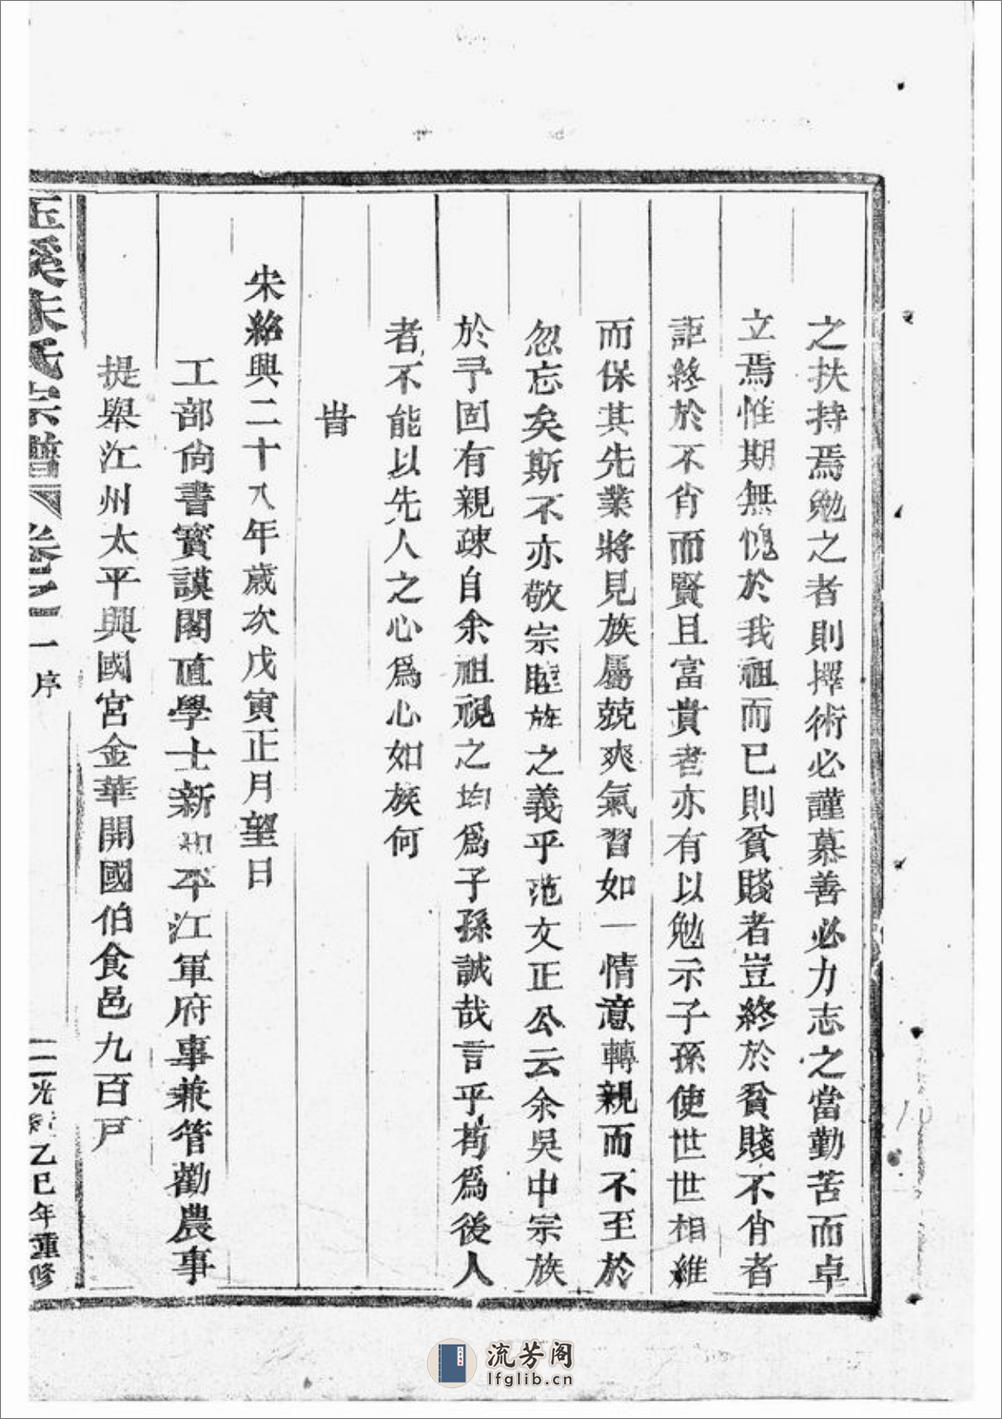 之扶持焉勉之者則擇術必謹慕善必力志之當勤苦而卓
立焉惟期無愧於我祖而已則貧賤者豈終於貧賤不肖者
詎終於不肖而賢且富貴者亦有以勉示子孫使世世相維
而保其先業將見族屬兢爽氣習如一情意轉親而不至於
忽忘矣斯不亦敬宗睦族之義乎范文正公云余吳中宗族
於予固有親疎自余祖視之均為子孫誠哉言乎苟為後人
者不能以先人之心爲心如族何
旹
宋紹興二十八年歲次戊寅正月望日
工部尙書寶謨閣直學士新知平江軍府事兼管勸農事
提舉江州太平興國宮金華開國伯食邑九百戶
玉溪朱氏宗譜 卷之一 序 二 光緒乙巳年重修
流芳阁
lfglib.cn